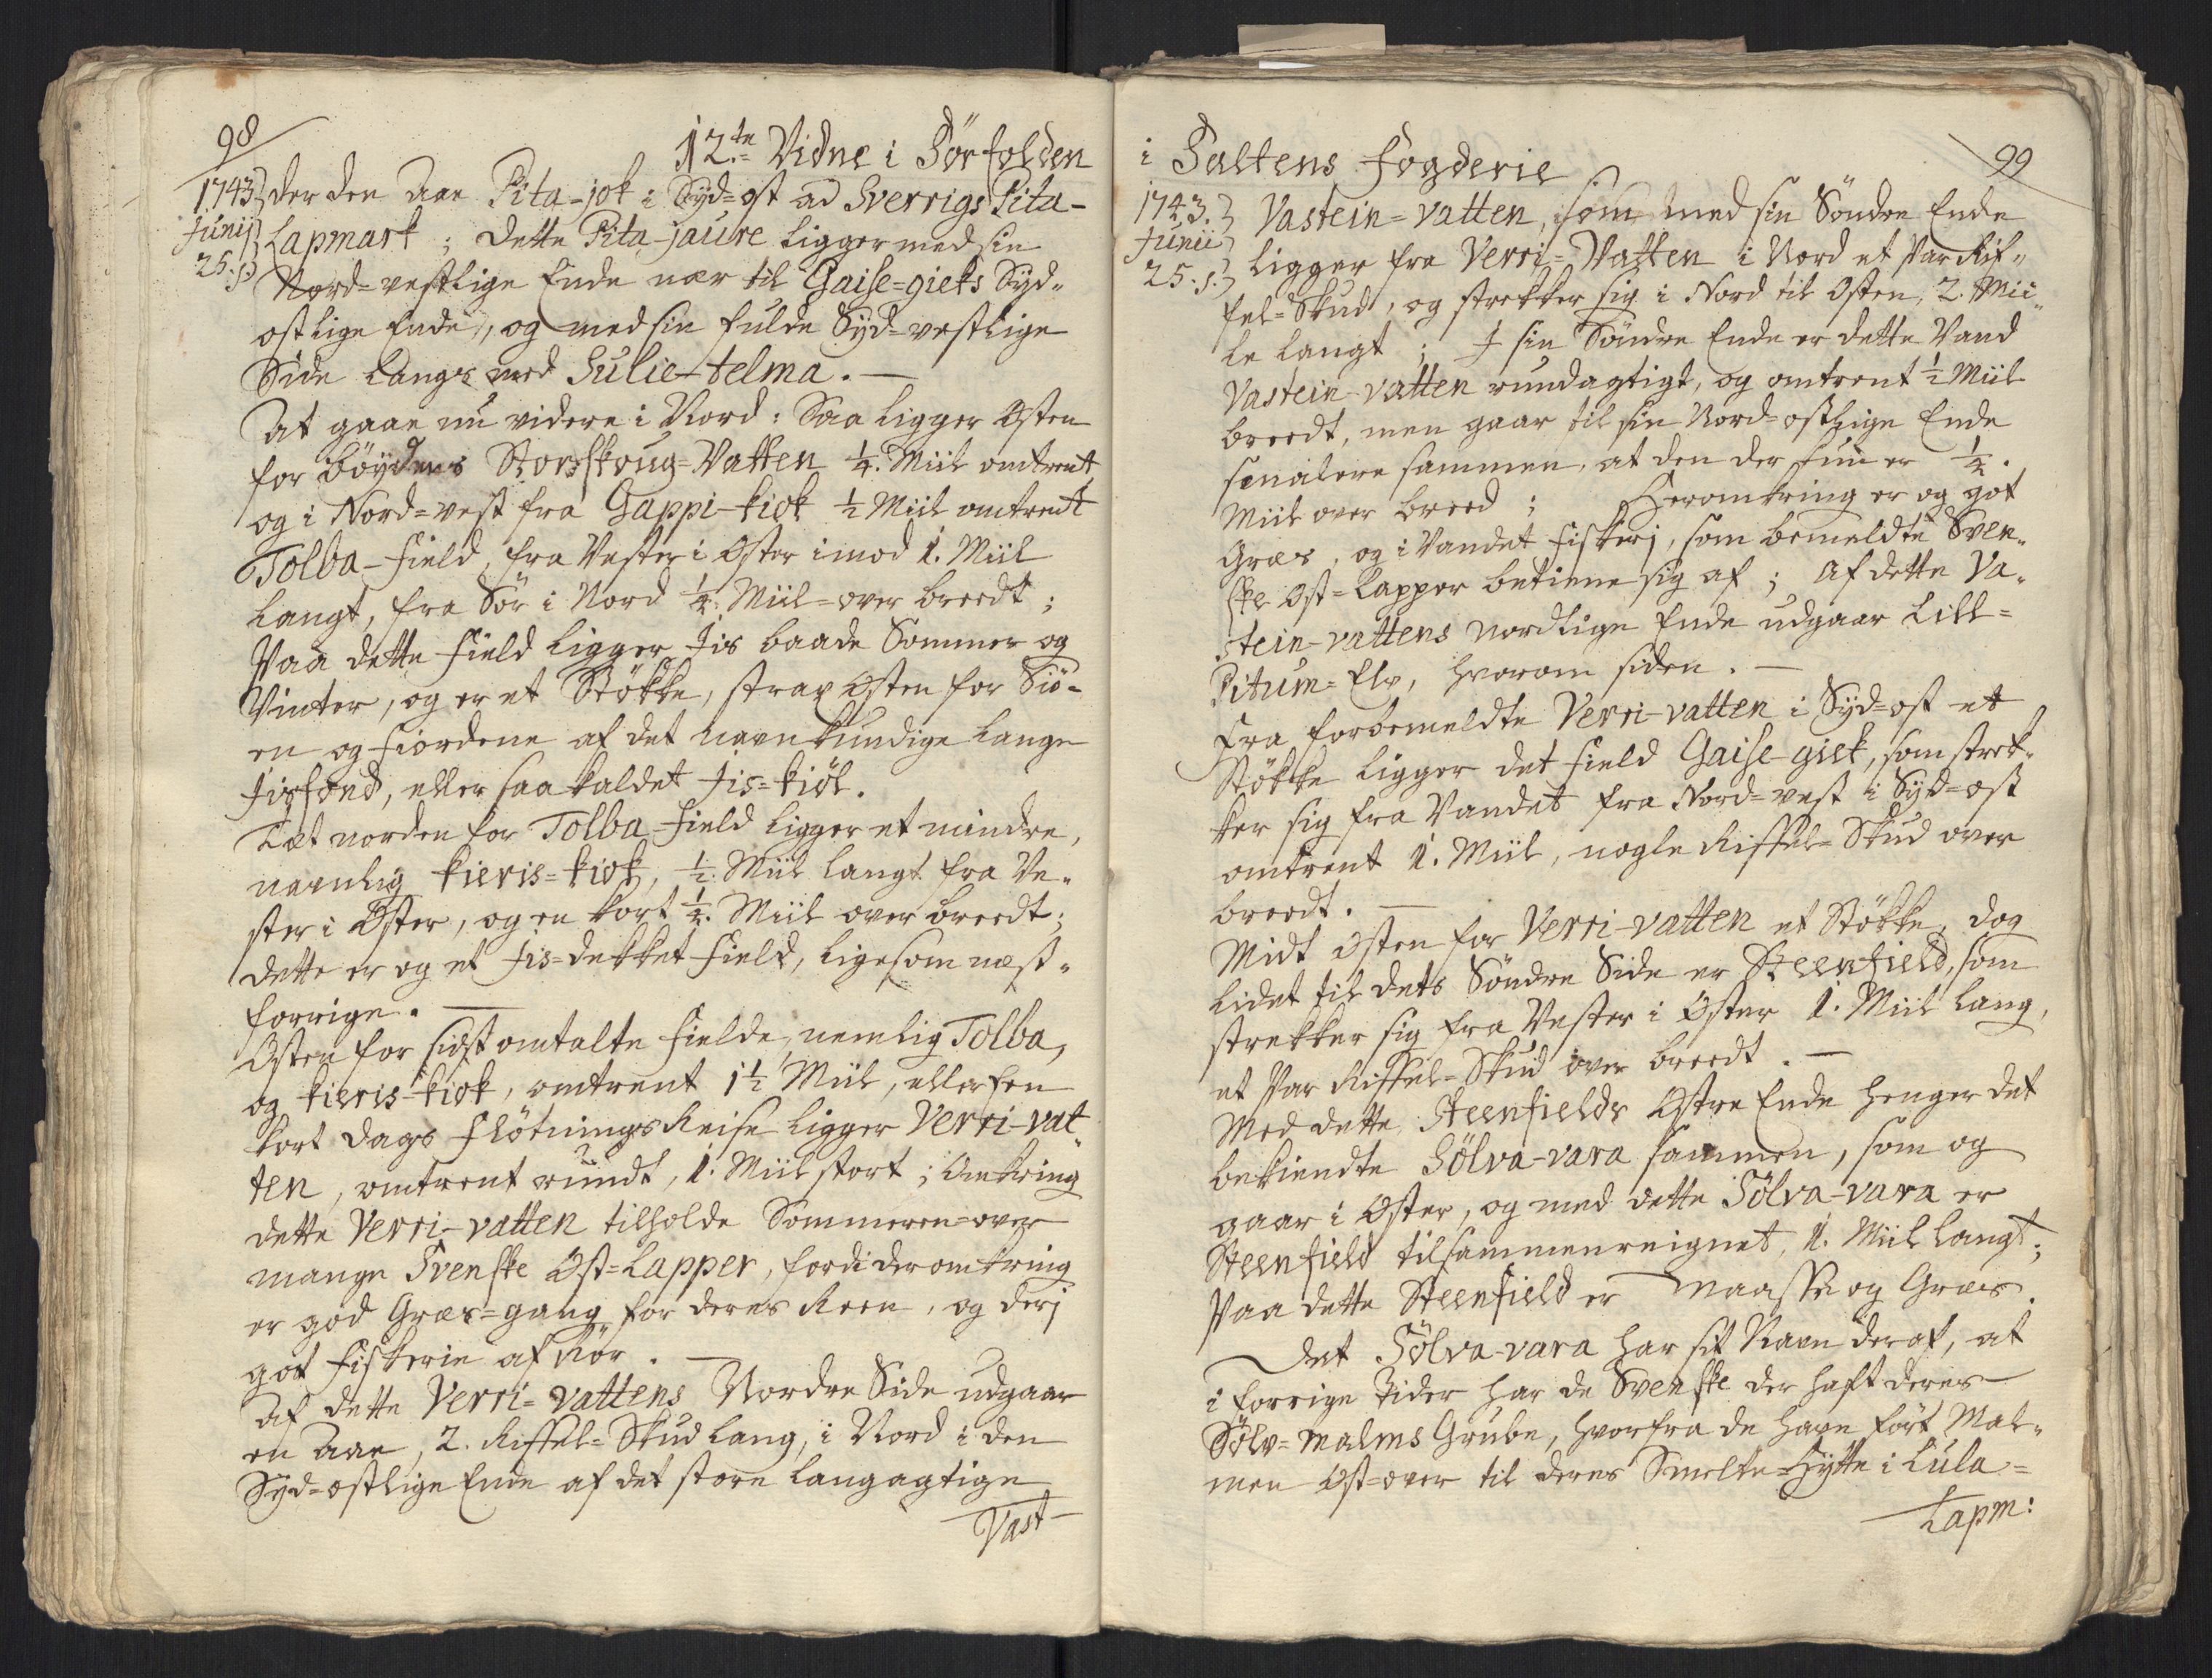 98
12.te Vidne i Sör folden
1743. der den Aae Pita-jok i Syd-ost ad Sverrigs Pita-
Junij Lapmark ; dette Pita-jaure ligger med sin
25. s. Nord-vestlige Ende nær til Gaise-gieks Syd-
ostlige Ende, og med sin fulde Syd-vestlige
Side langs med Sulie-telma. —
At gaae nu videre i Nord: Saa ligger Osten
for böydens Storskoug-Vatten ¼. Miil omtrent
og i Nord-vest fra Gappi-kiok ½ Miil omtrent
Tolba-Field, fra Vester i Oster imod 1. Miil
langt, fra Sör i Nord ¼. Miil-over breedt ;
Paa dette Field ligger Jis baade Sommer og
Vinter, og er et Stökke, strax Osten for Siö-
en og Fiordene af det navnkundige lange
Jisfond, eller saa kaldet Jis-kiöl.
Tæt norden for Tolba-Field ligger et mindre,
navnlig kieris-kiok, ½. Miil langt fra Ve-
ster i Öster, og en kort ½. Miil over breedt ;
dette er og et Jis-dekket Field, ligesom næst-
forrige. —
Osten for sidst omtalte Fielde, nemlig Tolba,
og kieris-kiok, omtrent 1½ Miil, eller een
kort Dags Flötnings Reise ligger Verri-vat-
ten, omtrent rundt, 1. Miil stort ; Omkring
dette Verri-vatten tilholde Sommeren-over
mange Svenske Ost-Lapper, fordi deromkring
er god Græs-gang for deres Reen, og derj
got Fiskerie af Rör. —
Af dette Verri-vattens Nordre Side udgaar
en Aae, 2. Riffel-Skud lang, i Nord i den
Syd-ostlige Ende af det store langagtige
Vast-
i Saltens Fogderie
99
1743. Vastein-vatten, som med sin Söndre Ende
Junii ligger fra Verri-Vatten i Nord et Par Rif-
25. s. fel-Skud, og strekker sig i Nord til Osten, 2. Mii-
le langt ; I sin Söndre Ende er dette Vand
Vastein-vatten rundagtigt, og omtrent ½ Miil
breedt, men gaar til sin Nord-ostlige Ende
smalere sammen, at den der kun er ¼.
Miil over breed ; Heromkring er og got
Græs, og i Vandet Fiskerj, som bemeldte Sven-
ske Ost-Lapper betiene sig af ; Af dette Va-
stein-vattens nordlige Ende udgaar Lill-
Pitum-Elv, hvorom siden. —
Fra forbemeldte Verri-vatten i Syd-ost et
Stökke ligger det Field Gaise-giek, som strek-
ker sig fra Vandet fra Nord-vest i Syd-ost
omtrent 1. Miil, nogle Riffel-Skud over
breedt. —
Midt Osten for Verri-vatten et Stökke, dog
lidet til dets Söndre Side er Steenfield, som
strekker sig fra Vester i Oster 1. Miil lang,
et Par Riffel-Skud over breedt. —
Med dette Steenfields Ostre Ende henger det
bekiendte Sölva-vara sammen, som og
gaar i Oster, og med dette Sölva-vara er
Steenfield tilsammenreignet, 1. Miil langt ;
Paa dette Steenfield er Maasse og Græs.
Det Sölva-vara har sit Navn deraf, at
i forrige Tider har de Svenske der haft deres
Sölv-Malms Grube, hvorfra de have fört Mal-
men Ost-over til deres Smelte-Hytte i Lula-
Lapm: